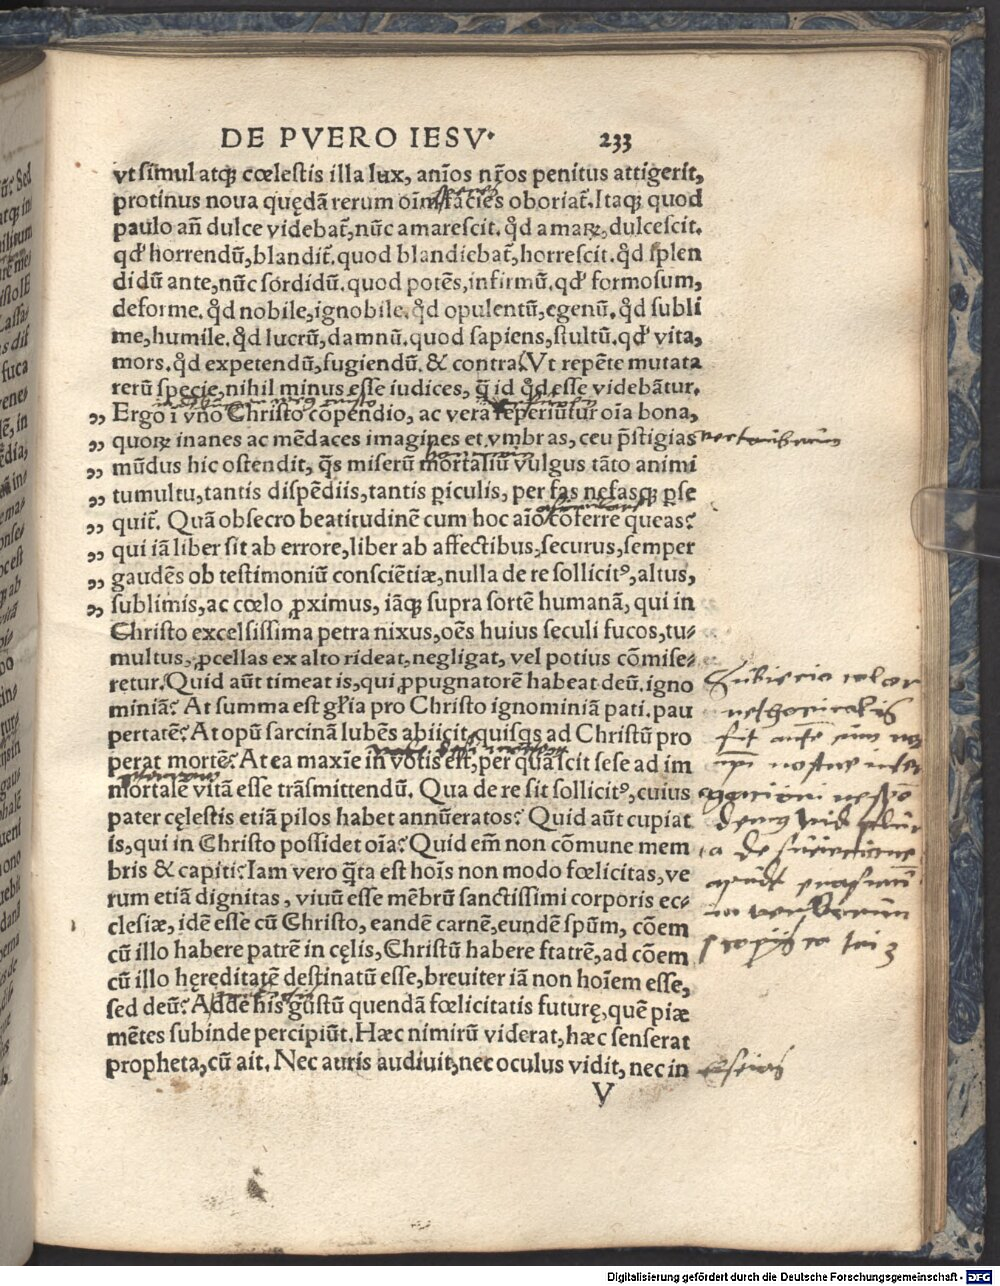 DE PVERO IESV. 233
vt simul atq; cœlestis illa lux, anīos nr̄os penitus attigerit,
protinus noua quędā rerum oīm facies oboriat̄. Itaq; quod
paulo an̄ dulce videbat̄, nūc amarescit. qd̄ amaꝝ, dulcescit.
qd̄ horrendū, blandit̄. quod blandiebat̄, horrescit. qd̄ splen
didū ante, nūc sordidū. quod potēs, infirmū. qd̄ formosum,
deforme. qd̄ nobile, ignobile. qd̄ opulentū, egenū. qd̄ subli
me, humile. qd̄ lucrū, damnū. quod sapiens, stultū. qd̄ vita,
mors. qd̄ expetendū, fugiendū. & contra. Vt repēte mutata
rerū specie, nihil minus esse iudices, q̄ id qd̄ esse videbātur.
„ Ergo ī vno Christo cōpendio, ac vera reperiūtur oīa bona,
„ quoꝝ inanes ac mēdaces imagines et vmbras, ceu p̄stigias
„ mūdus hic ostendit, q̄s miserū mortaliū vulgus tāto animi
„ tumultu, tantis dispēdiis, tantis ꝑiculis, per fas nefasq; ꝑse
„ quit̄. Quā obsecro beatitudinē cum hoc aīo cōferre queas?
„ qui iā liber sit ab errore, liber ab affectibus, securus, semper
„ gaudēs ob testimoniū consciētiæ, nulla de re sollicitꝰ, altus,
„ sublimis, ac cœlo ꝓximus, iāq; supra sortē humanā, qui in
Christo excelsissima petra nixus, oēs huius seculi fucos, tu-
multus, ꝓcellas ex alto rideat, negligat, vel potius cōmise-
retur. Quid aūt timeat is, qui ꝓpugnatorē habeat deū. igno
miniā? At summa est gl̄ia pro Christo ignominiā pati. pau
pertatē? At opū sarcinā lubēs abiicit, quisqs ad Christū pro
perat mortē? At ea maxīe in votis est, per quā scit sese ad im
mortalē vitā esse trāsmittendū. Qua de re sit sollicitꝰ, cuius
pater cęlestis etiā pilos habet annūeratos? Quid aūt cupiat
is, qui in Christo possidet oīa? Quid em̄ non cōmune mem
bris & capiti? Iam vero q̄ta est hoīs non modo fœlicitas, ve
rum etiā dignitas, viuū esse mēbrū sanctissimi corporis ec-
clesiæ, idē esse cū Christo, eandē carnē, eundē sp̄um, cōem
cū illo habere patrē in cęlis, Christū habere fr̄atrē, ad cōem
cū illo hęreditatē destinatū esse, breuiter iā non hoīem esse,
sed deū? Adde his gustū quendā fœlicitatis futurę, quē piæ
mētes subinde percipiūt. Hæc nimirū viderat, hæc senserat
propheta, cū ait. Nec auris audiuit, nec oculus vidit, nec in
V
Digitalisierung gefördert durch die Deutsche Forschungsgemeinschaft - DFG